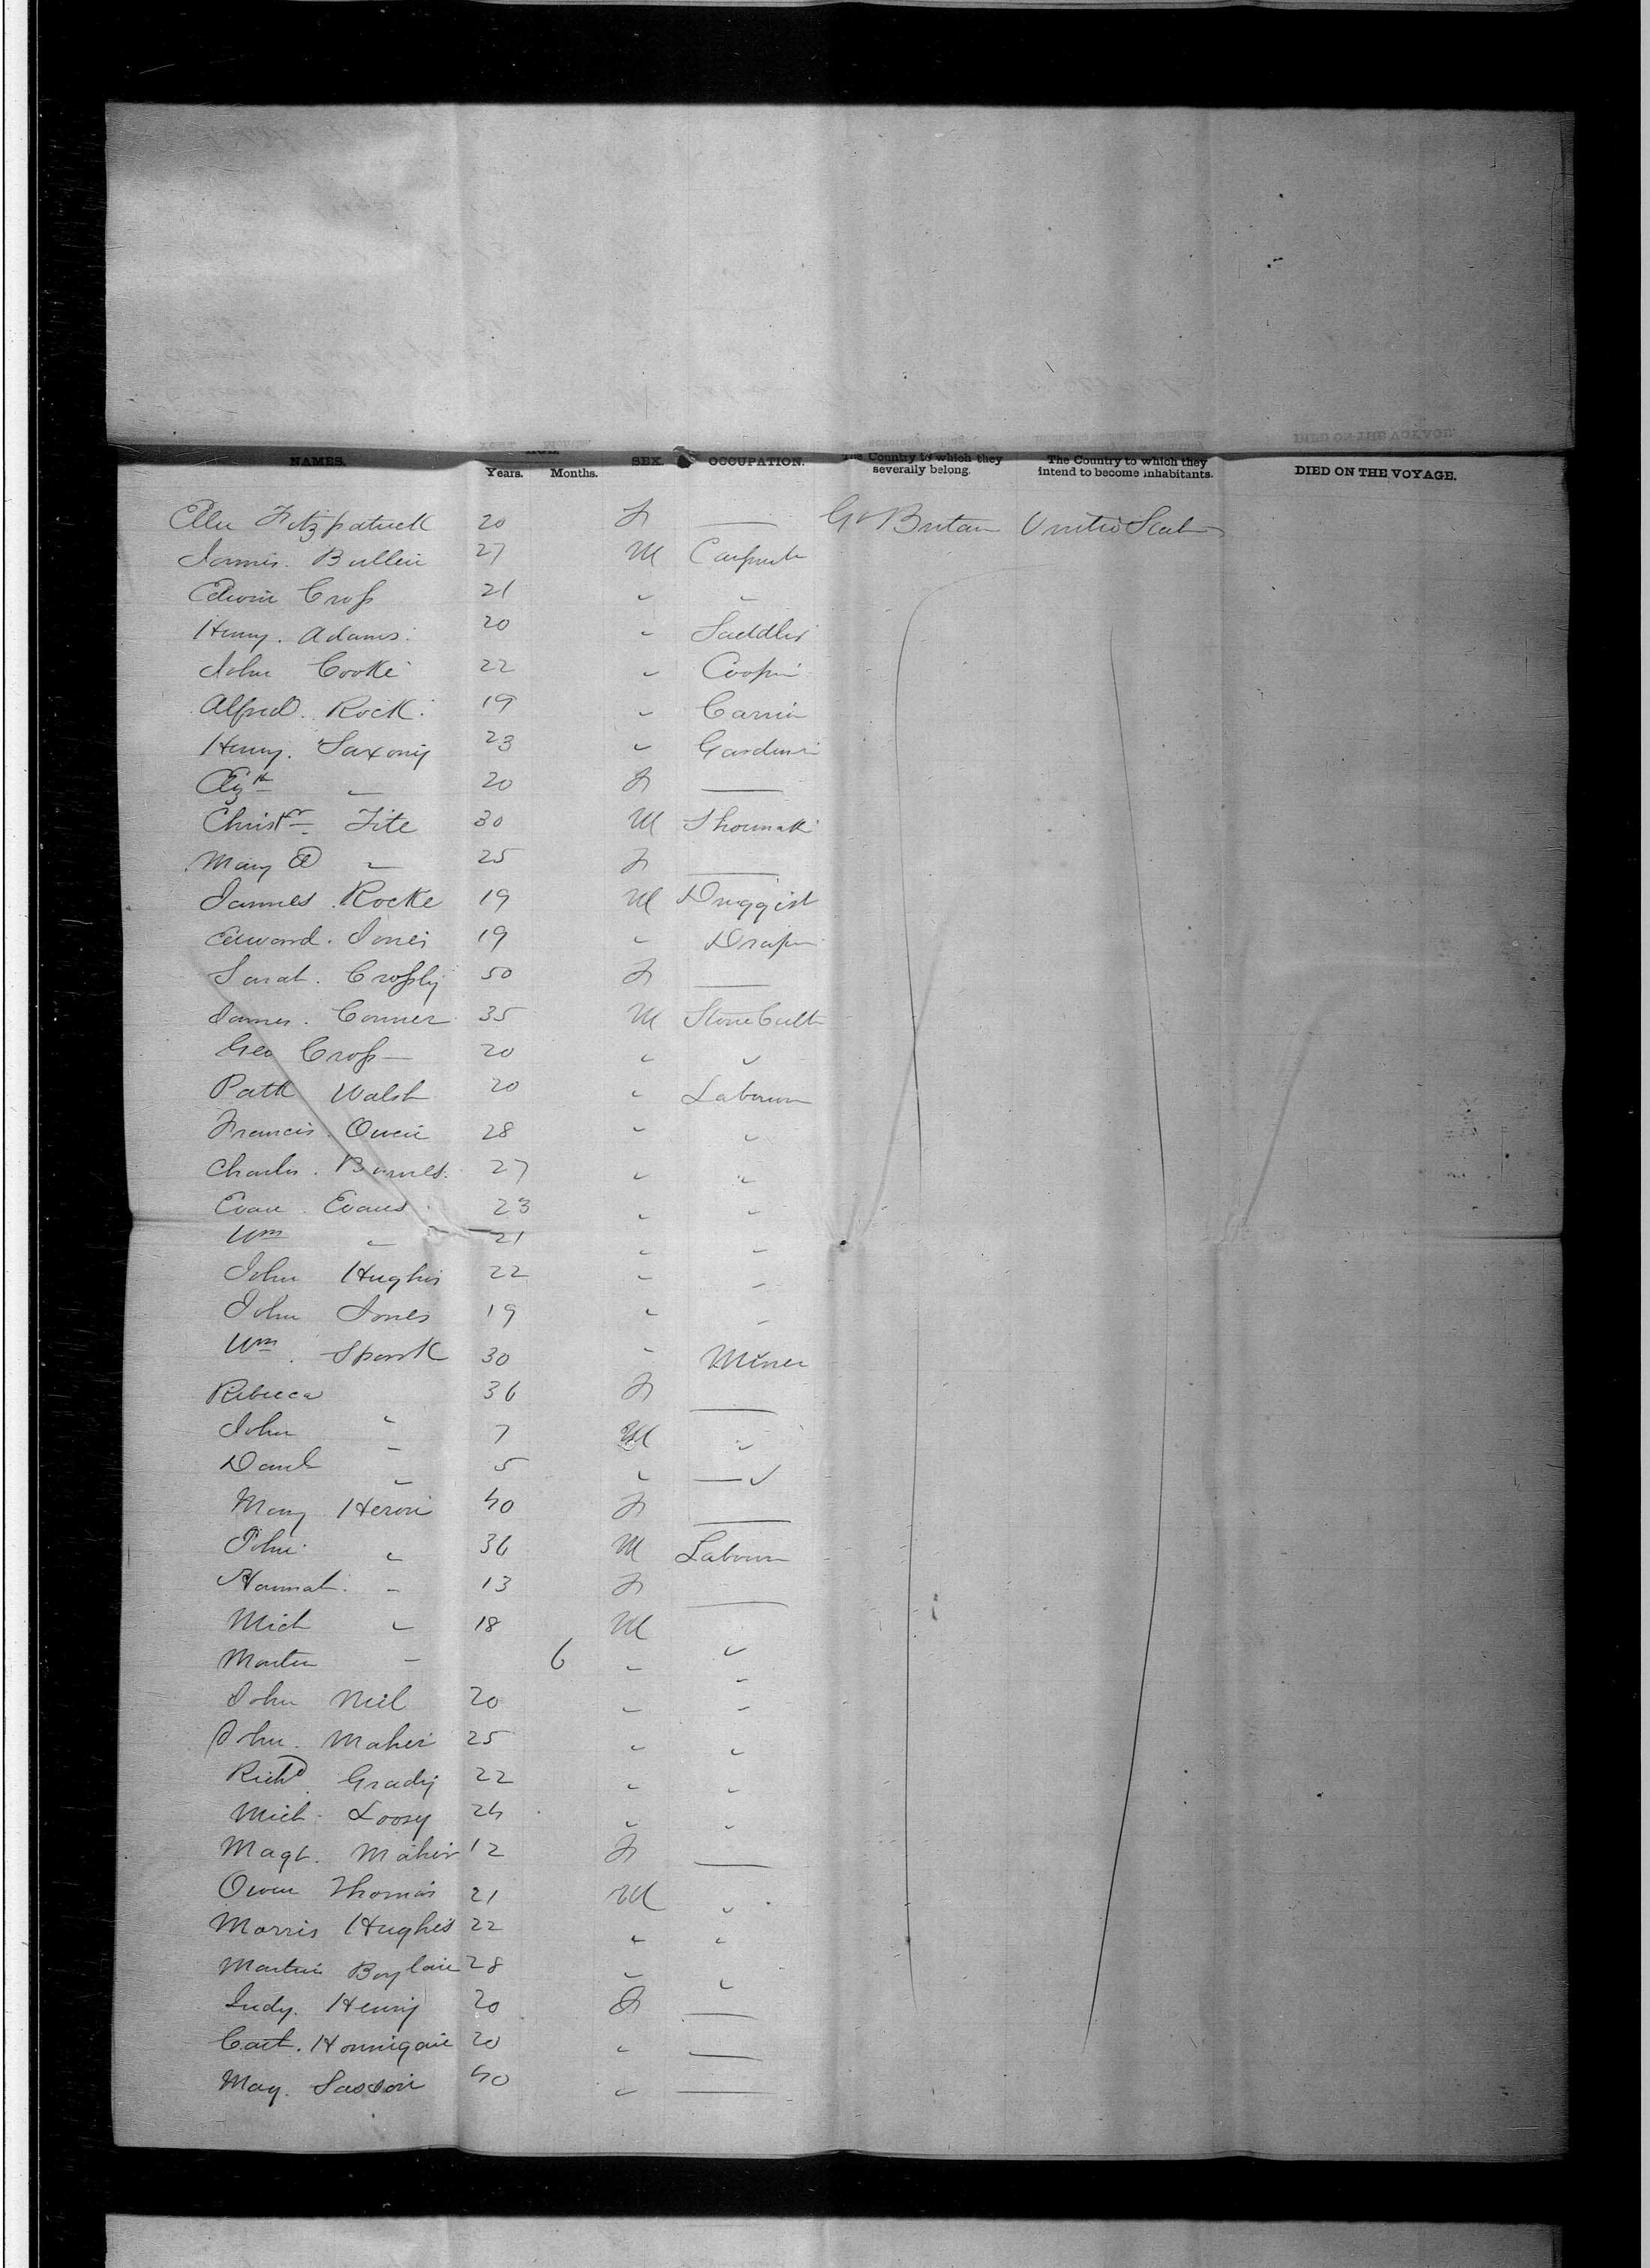 NAMES. AGE. Years. Months. SEX. OCCUPATION. The Country to which they severally belong. The Country to which they intend to become inhabitants. DIED ON THE VOYAGE.
Ellen Fitzpatrick 20 F — Gt Britain United States
James. Bullen 27 M Carpenter
Edwin Cross 21 " "
Henry. Adams. 20 " Saddler
John Cooke 22 " Cooper
Alfred. Rock. 19 " Carrier
Henry. Saxony 23 " Gardener
Elizth " 20 F —
Christr. Tite 30 M Shoemak
Mary A " 25 F —
James Rocke 19 M Druggist
Edward. Jones 19 " Draper
Sarah. Crossly 50 F —
James. Conner 35 M Stone Cutter
Geo Cross 20 " "
Patk Walsh 20 " Labourer
Francis. Owen 28 " "
Charles. Barnes. 27 " "
Evan Evans 23 " "
Wm " 21 " "
John Hughes 22 " "
John Jones 19 " "
Wm. Spark 30 " Miner
Rebecca " 36 F —
John " 7 M "
Danl " 5 " — "
Mary Heron 40 F —
John " 36 M Labourer
Hannah. " 13 F —
Mich " 18 M "
Martin " 6 " "
John Neil 20 " "
John. Maher 25 " "
Richd Grady 22 " "
Mich. Loosy 24 " "
Magt. Maher 12 F —
Owen Thomas 21 M "
Morris Hughes 22 " "
Martin Boylan 28 " "
Judy. Henry 20 F —
Cath. Hannigan 20 " —
May. 40 " —